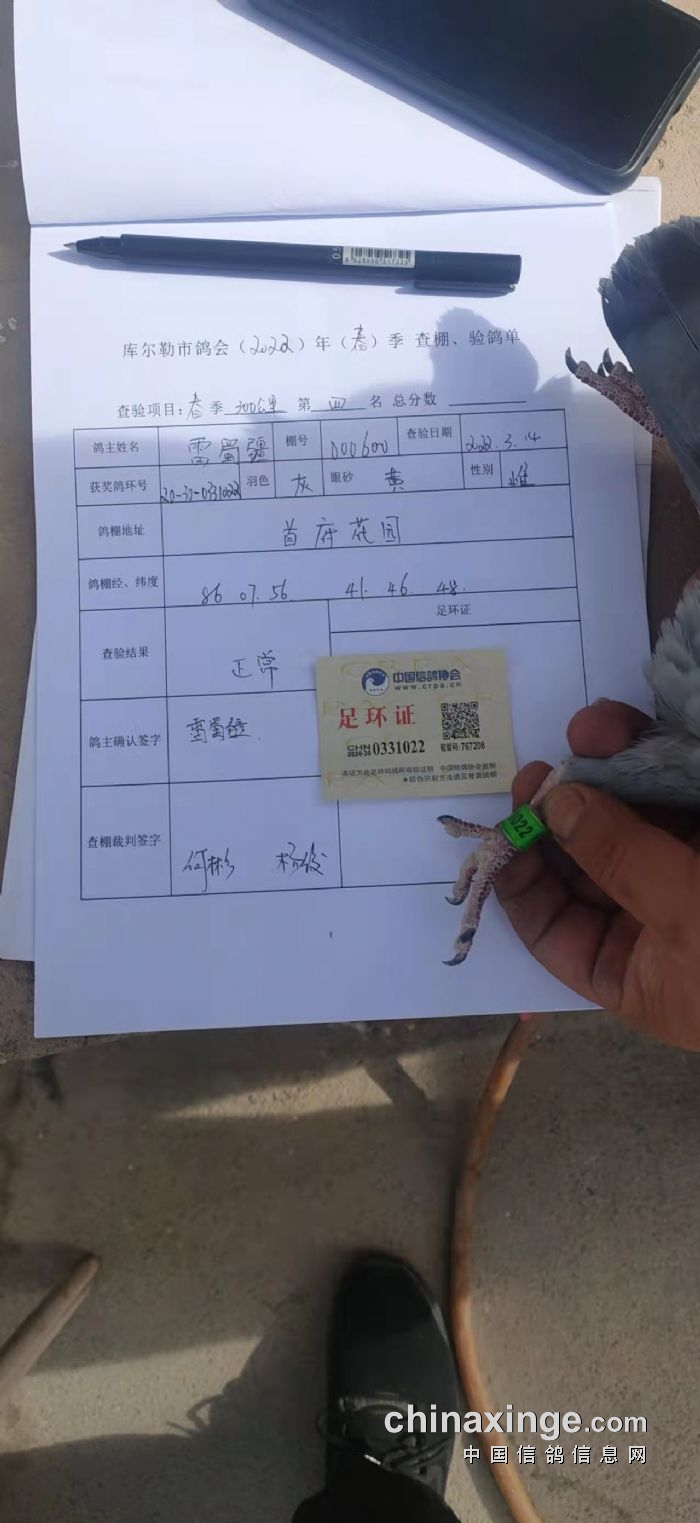 0.5
6 928956 517325
库尔勒市鸽会（2022）年（春）季 查棚、验鸽单
查验项目：春季 300公里 第 四 名 总分数
鸽主姓名 雷蜀疆 棚号 000600 查验日期 2022.3.14
获奖鸽环号 20-30-0331022 羽色 灰 眼砂 黄 性别 雌
鸽棚地址 首府花园
鸽棚经、纬度 86 07. 56. 41. 46. 48.
足环证
查验结果 正常
中国信鸽协会
www.crpa.cn
足环证
CHN
2020-30 0331022
校验码：767206
本证为此足环同鸽所有权证明 中国信鸽协会监制
★防伪识别方法请见背面说明
鸽主确认签字 雷蜀疆.
查棚裁判签字 何彬 杨俊
1022
chinaxinge.com
中国信鸽信息网